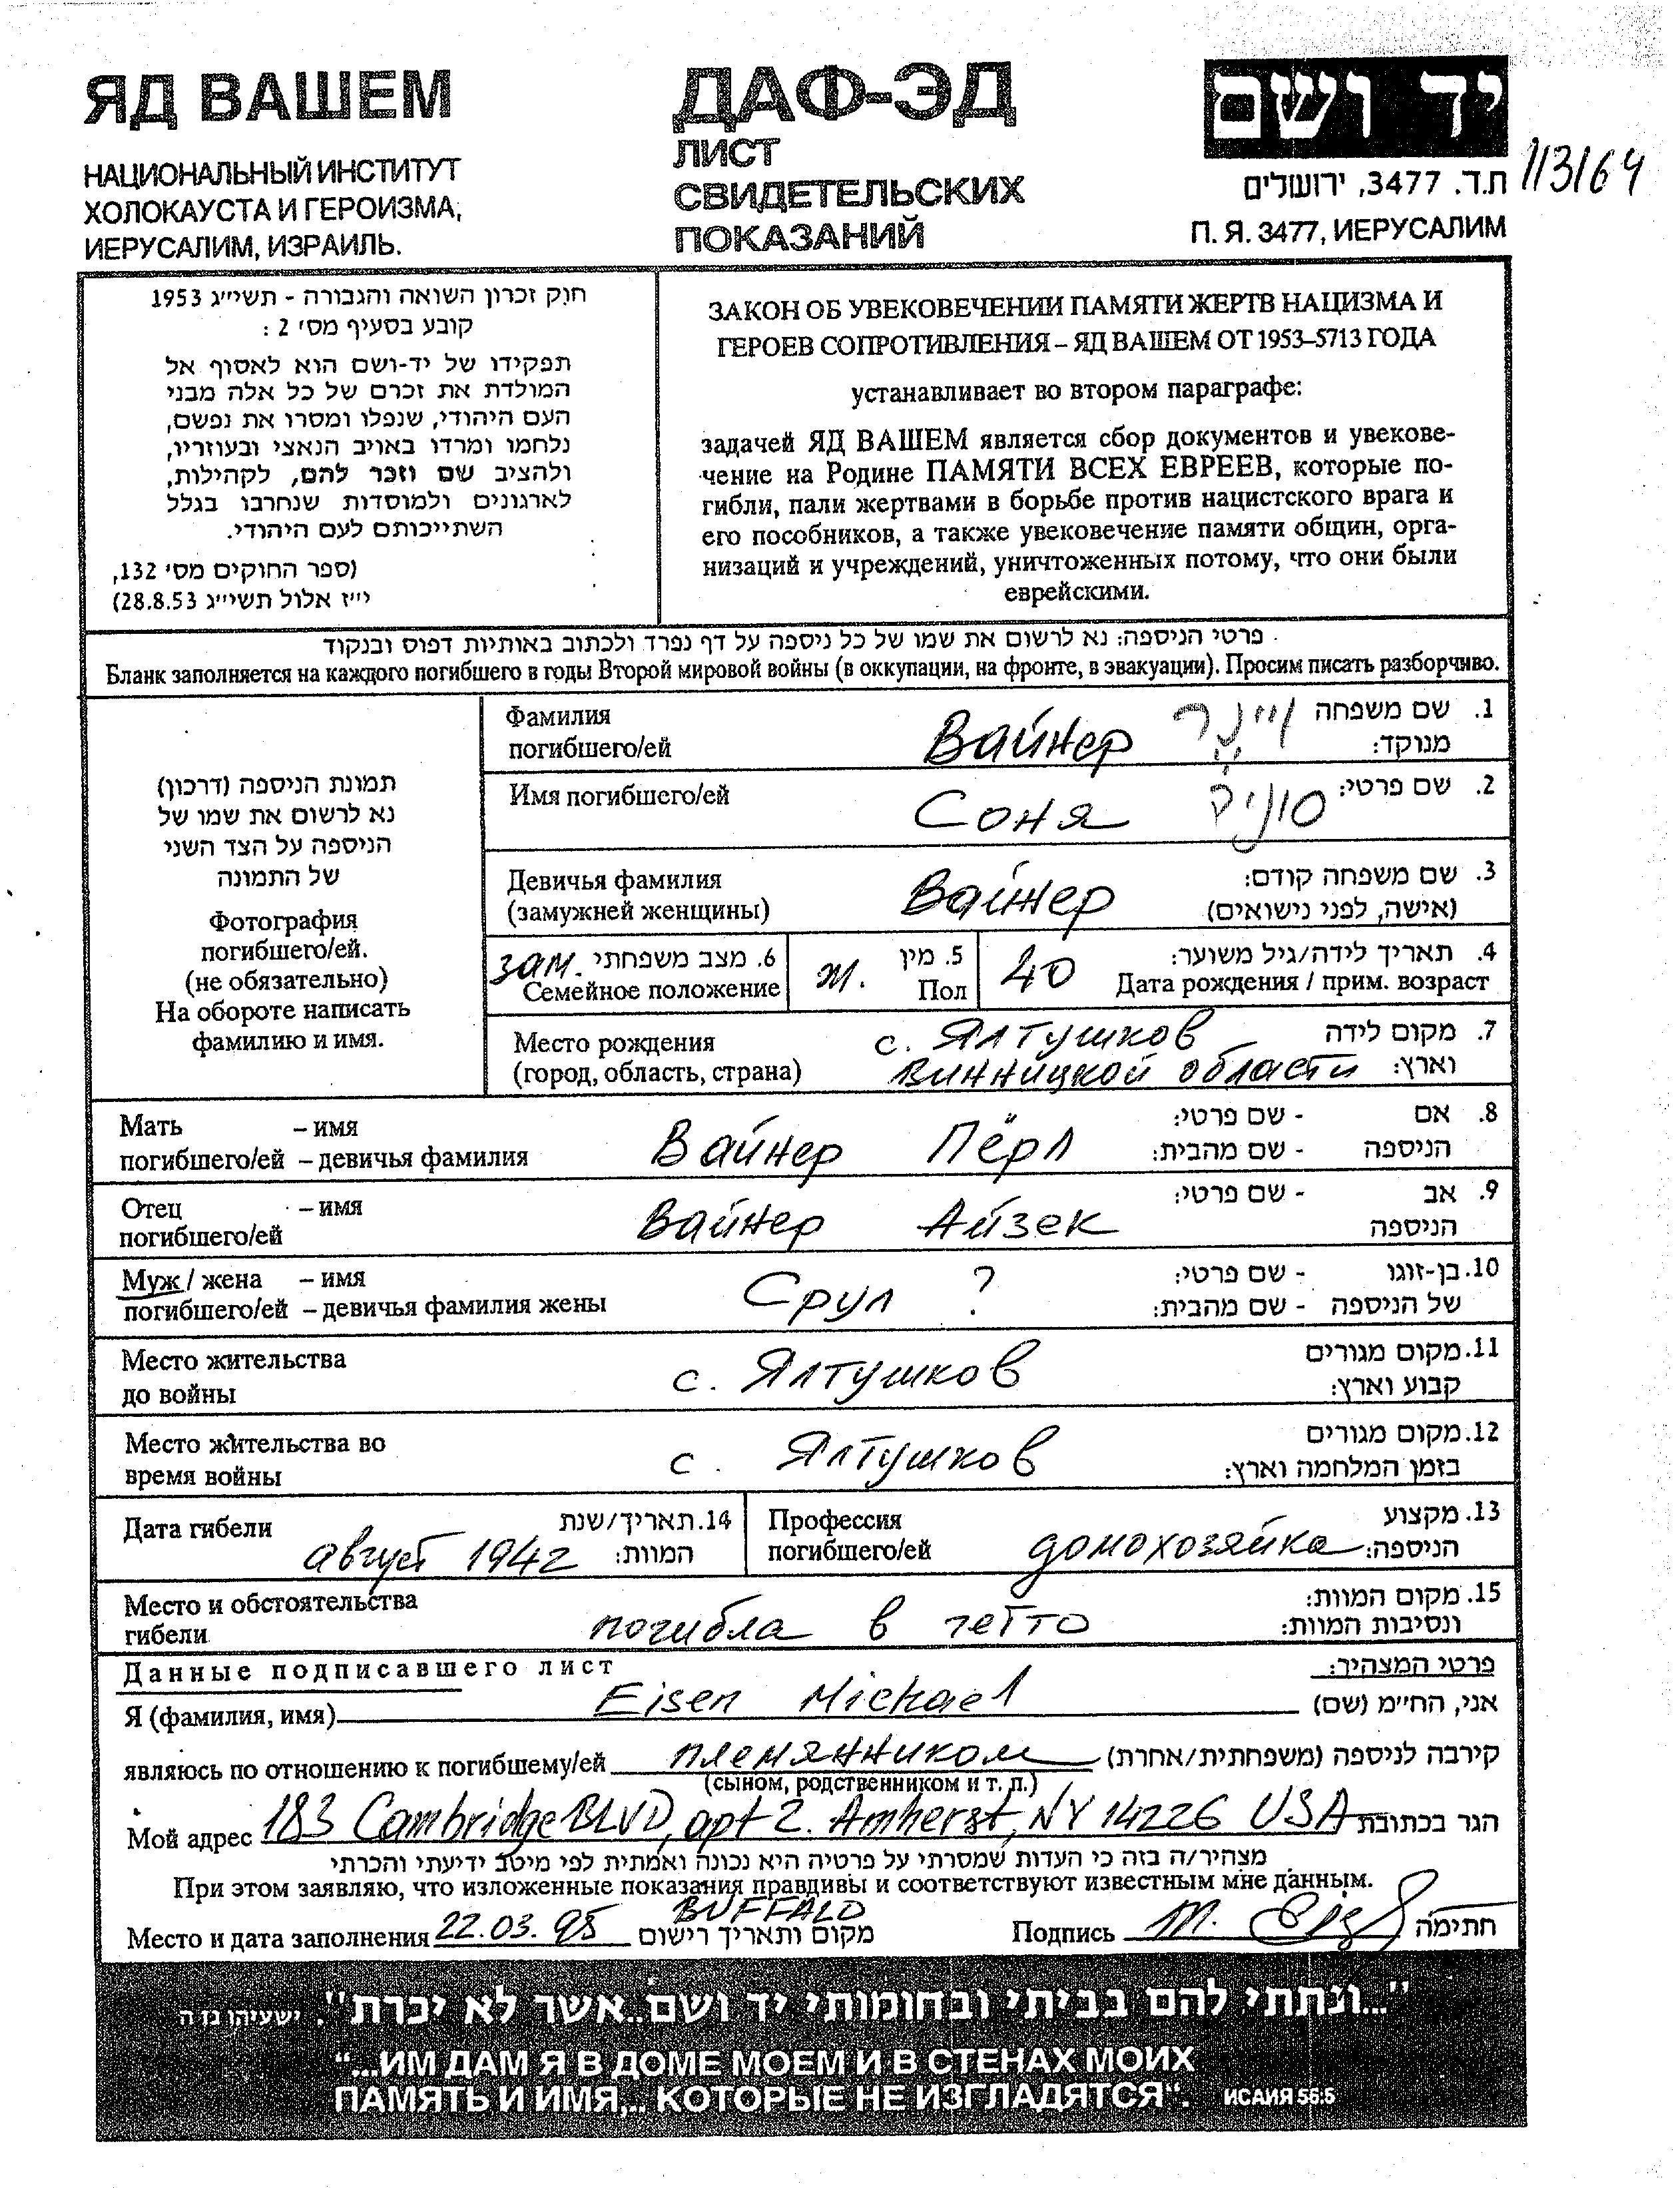 ЯД ВАШЕМ
НАЦИОНАЛЬНЫЙ ИНСТИТУТ
ХОЛОКАУСТА И ГЕРОИЗМА,
ИЕРУСАЛИМ, ИЗРАИЛЬ.
ДАФ-ЭД
ЛИСТ
СВИДЕТЕЛЬСКИХ
ПОКАЗАНИЙ
יד ושם
ת.ד. 3477, ירושלים
113/64
П. Я. 3477, ИЕРУСАЛИМ
חוק זכרון השואה והגבורה - תשי״ג 1953
קובע בסעיף מס׳ 2 :
תפקידו של יד-ושם הוא לאסוף אל
המולדת את זכרם של כל אלה מבני
העם היהודי, שנפלו ומסרו את נפשם,
נלחמו ומרדו באויב הנאצי ובעוזריו,
ולהציב שם וזכר להם, לקהילות,
לארגונים ולמוסדות שנחרבו בגלל
השתייכותם לעם היהודי.
(ספר החוקים מס׳ 132,
י״ז אלול תשי״ג 28.8.53)
ЗАКОН ОБ УВЕКОВЕЧЕНИИ ПАМЯТИ ЖЕРТВ НАЦИЗМА И
ГЕРОЕВ СОПРОТИВЛЕНИЯ – ЯД ВАШЕМ ОТ 1953–5713 ГОДА
устанавливает во втором параграфе:
задачей ЯД ВАШЕМ является сбор документов и увекове-
чение на Родине ПАМЯТИ ВСЕХ ЕВРЕЕВ, которые по-
гибли, пали жертвами в борьбе против нацистского врага и
его пособников, а также увековечение памяти общин, орга-
низаций и учреждений, уничтоженных потому, что они были
еврейскими.
פרטי הניספה: נא לרשום את שמו של כל ניספה על דף נפרד ולכתוב באותיות דפוס ובנקוד
Бланк заполняется на каждого погибшего в годы Второй мировой войны (в оккупации, на фронте, в эвакуации). Просим писать разборчиво.
תמונת הניספה (דרכון)
נא לרשום את שמו של
הניספה על הצד השני
של התמונה
Фотография
погибшего/ей.
(не обязательно)
На обороте написать
фамилию и имя.
Фамилия
погибшего/ей
Вайнер
ויינר
1. שם משפחה
מנוקד:
Имя погибшего/ей
Соня
סוניה
2. שם פרטי:
Девичья фамилия
(замужней женщины)
Вайнер
3. שם משפחה קודם:
(אישה, לפני נישואים)
зам.
6. מצב משפחתי
Семейное положение
ж.
5. מין
Пол
40
4. תאריך לידה/גיל משוער:
Дата рождения / прим. возраст
Место рождения
(город, область, страна)
с. Ялтушков
Винницкой области
7. מקום לידה
וארץ:
Мать – имя
погибшего/ей – девичья фамилия
Вайнер Пёрл
8. אם - שם פרטי:
הניספה - שם מהבית:
Отец – имя
погибшего/ей
Вайнер Айзек
9. אב - שם פרטי:
הניספה
Муж / жена – имя
погибшего/ей – девичья фамилия жены
Срул ?
10. בן-זוגו - שם פרטי:
של הניספה - שם מהבית:
Место жительства
до войны
с. Ялтушков
11. מקום מגורים
קבוע וארץ:
Место жительства во
время войны
с. Ялтушков
12. מקום מגורים
בזמן המלחמה וארץ:
Дата гибели
август 1942
14. תאריך/שנת
המוות:
Профессия
погибшего/ей
домохозяйка
13. מקצוע
הניספה:
Место и обстоятельства
гибели
погибла в гетто
15. מקום המוות:
ונסיבות המוות:
Данные подписавшего лист
פרטי המצהיר:
Я (фамилия, имя) Eisen Michael אני, הח״מ (שם)
являюсь по отношению к погибшему/ей племянником קירבה לניספה (משפחתית/אחרת)
(сыном, родственником и т. п.)
Мой адрес 183 Cambridge BLVD, apt 2. Amherst, NY 14226 USA הגר בכתובת
מצהיר/ה בזה כי העדות שמסרתי על פרטיה היא נכונה ואמתית לפי מיטב ידיעתי והכרתי
При этом заявляю, что изложенные показания правдивы и соответствуют известным мне данным.
BUFFALO
Место и дата заполнения 22.03.95 מקום ותאריך רישום
Подпись M. חתימה
"...ונתתי להם בביתי ובחומותי יד ושם..אשר לא יכרת". ישעיהו נו ה
“...ИМ ДАМ Я В ДОМЕ МОЕМ И В СТЕНАХ МОИХ
ПАМЯТЬ И ИМЯ,.. КОТОРЫЕ НЕ ИЗГЛАДЯТСЯ“. ИСАИЯ 56:5